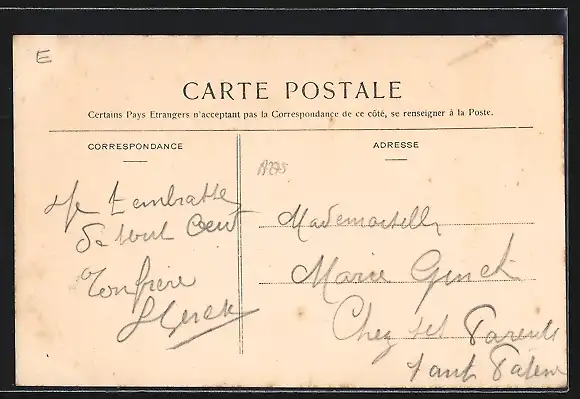 E
CARTE POSTALE
Certains Pays Etrangers n'acceptant pas la Correspondance de ce côté, se renseigner à la Poste.
CORRESPONDANCE
Je t embrasse
de tout Coeur
Ton frère
ADRESSE
A275
Mademoiselle
Marie
Chez ses Parents